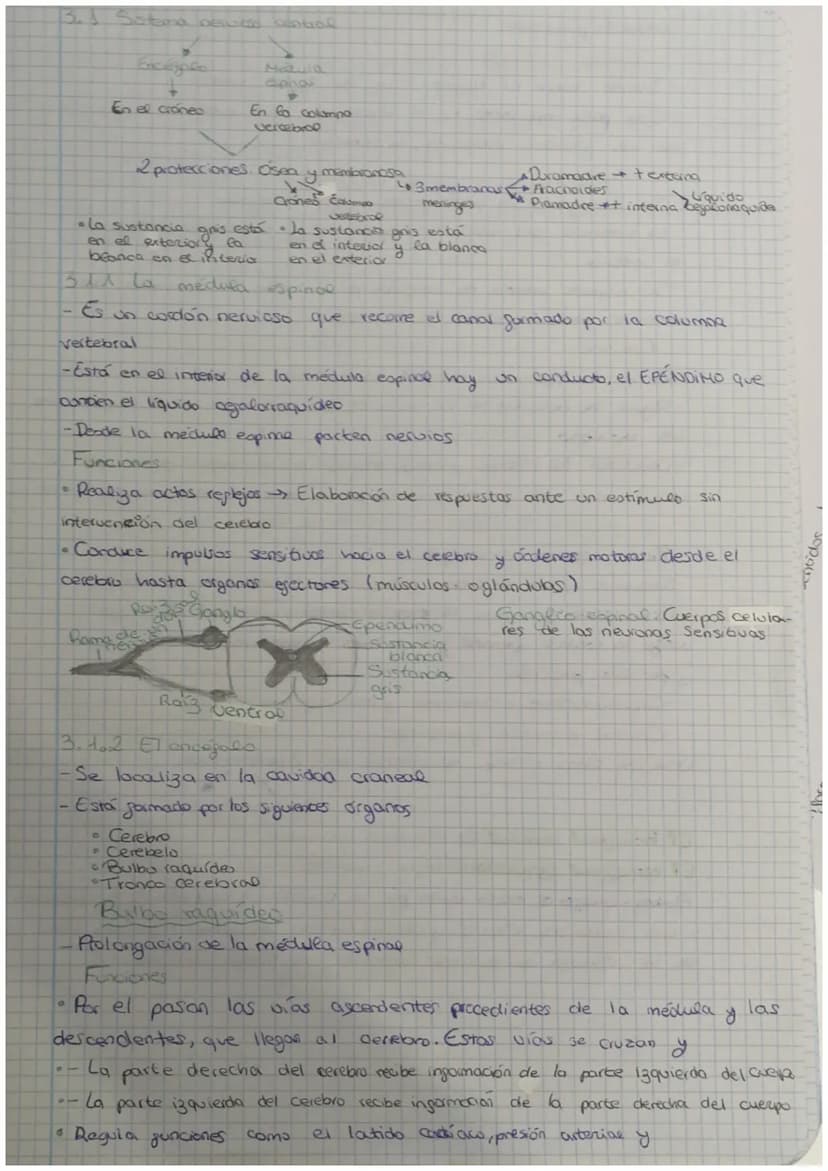 3.1 Sistema nervioso central
Encéfalo Médula
espinal
En el cráneo En la columna
vertebral
2 protecciones Ósea y membranosa
Cráneo Columna
vertebral
3 membranas
meninges
Duramadre → + externa
Aracnoides
Piamadre → + interna
Líquido
cefalorraquídeo
• La sustancia gris está
en el exterior y la
blanca en el interio
• La sustancia gris está
en el interior y la blanca
en el exterior
3.1.1 La médula espinal
- Es un cordón nervioso que recorre el canal formado por la columna
vertebral
- Está en el interior de la médula espinal hay un conducto, el EPÉNDIMO que
contien el líquido cefalorraquídeo
- Desde la médula espinal parten nervios
Funciones
• Realiza actos reflejos → Elaboración de respuestas ante un estímulo sin
intervención del cerebro
• Conduce impulsos sensitivos hacia el cerebro y órdenes motoras desde el
cerebro hasta organos efectores (músculos o glándulas)
Ganglio
Rama de
Raíz ventral
Epéndimo
Sustancia
blanca
Sustancia
gris
Ganglio espinal: Cuerpos celula-
res de las neuronas sensitivas
3.1.2 El encéfalo
- Se localiza en la cavidad craneal
- Está formado por los siguientes órganos
• Cerebro
• Cerebelo
• Bulbo raquídeo
• Tronco cerebral
Bulbo raquídeo
- Prolongación de la médula espinal
Funciones
• Por el pasan las vías ascendentes procedientes de la médula y las
descendentes, que llegan al cerebro. Estas vías se cruzan y
•- La parte derecha del cerebro recibe información de la parte izquierda del cuerpo
•- La parte izquierda del cerebro recibe información de la parte derecha del cuerpo
• Regula funciones como el latido cardíaco, presión arterial y